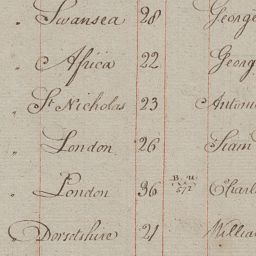 " Swansea 28 George
" Africa 22 Georg
" St Nicholas 23 Antoni
" London 26
" London 36 B. u. 572 Charl
" Dorsetshire 21 Willia